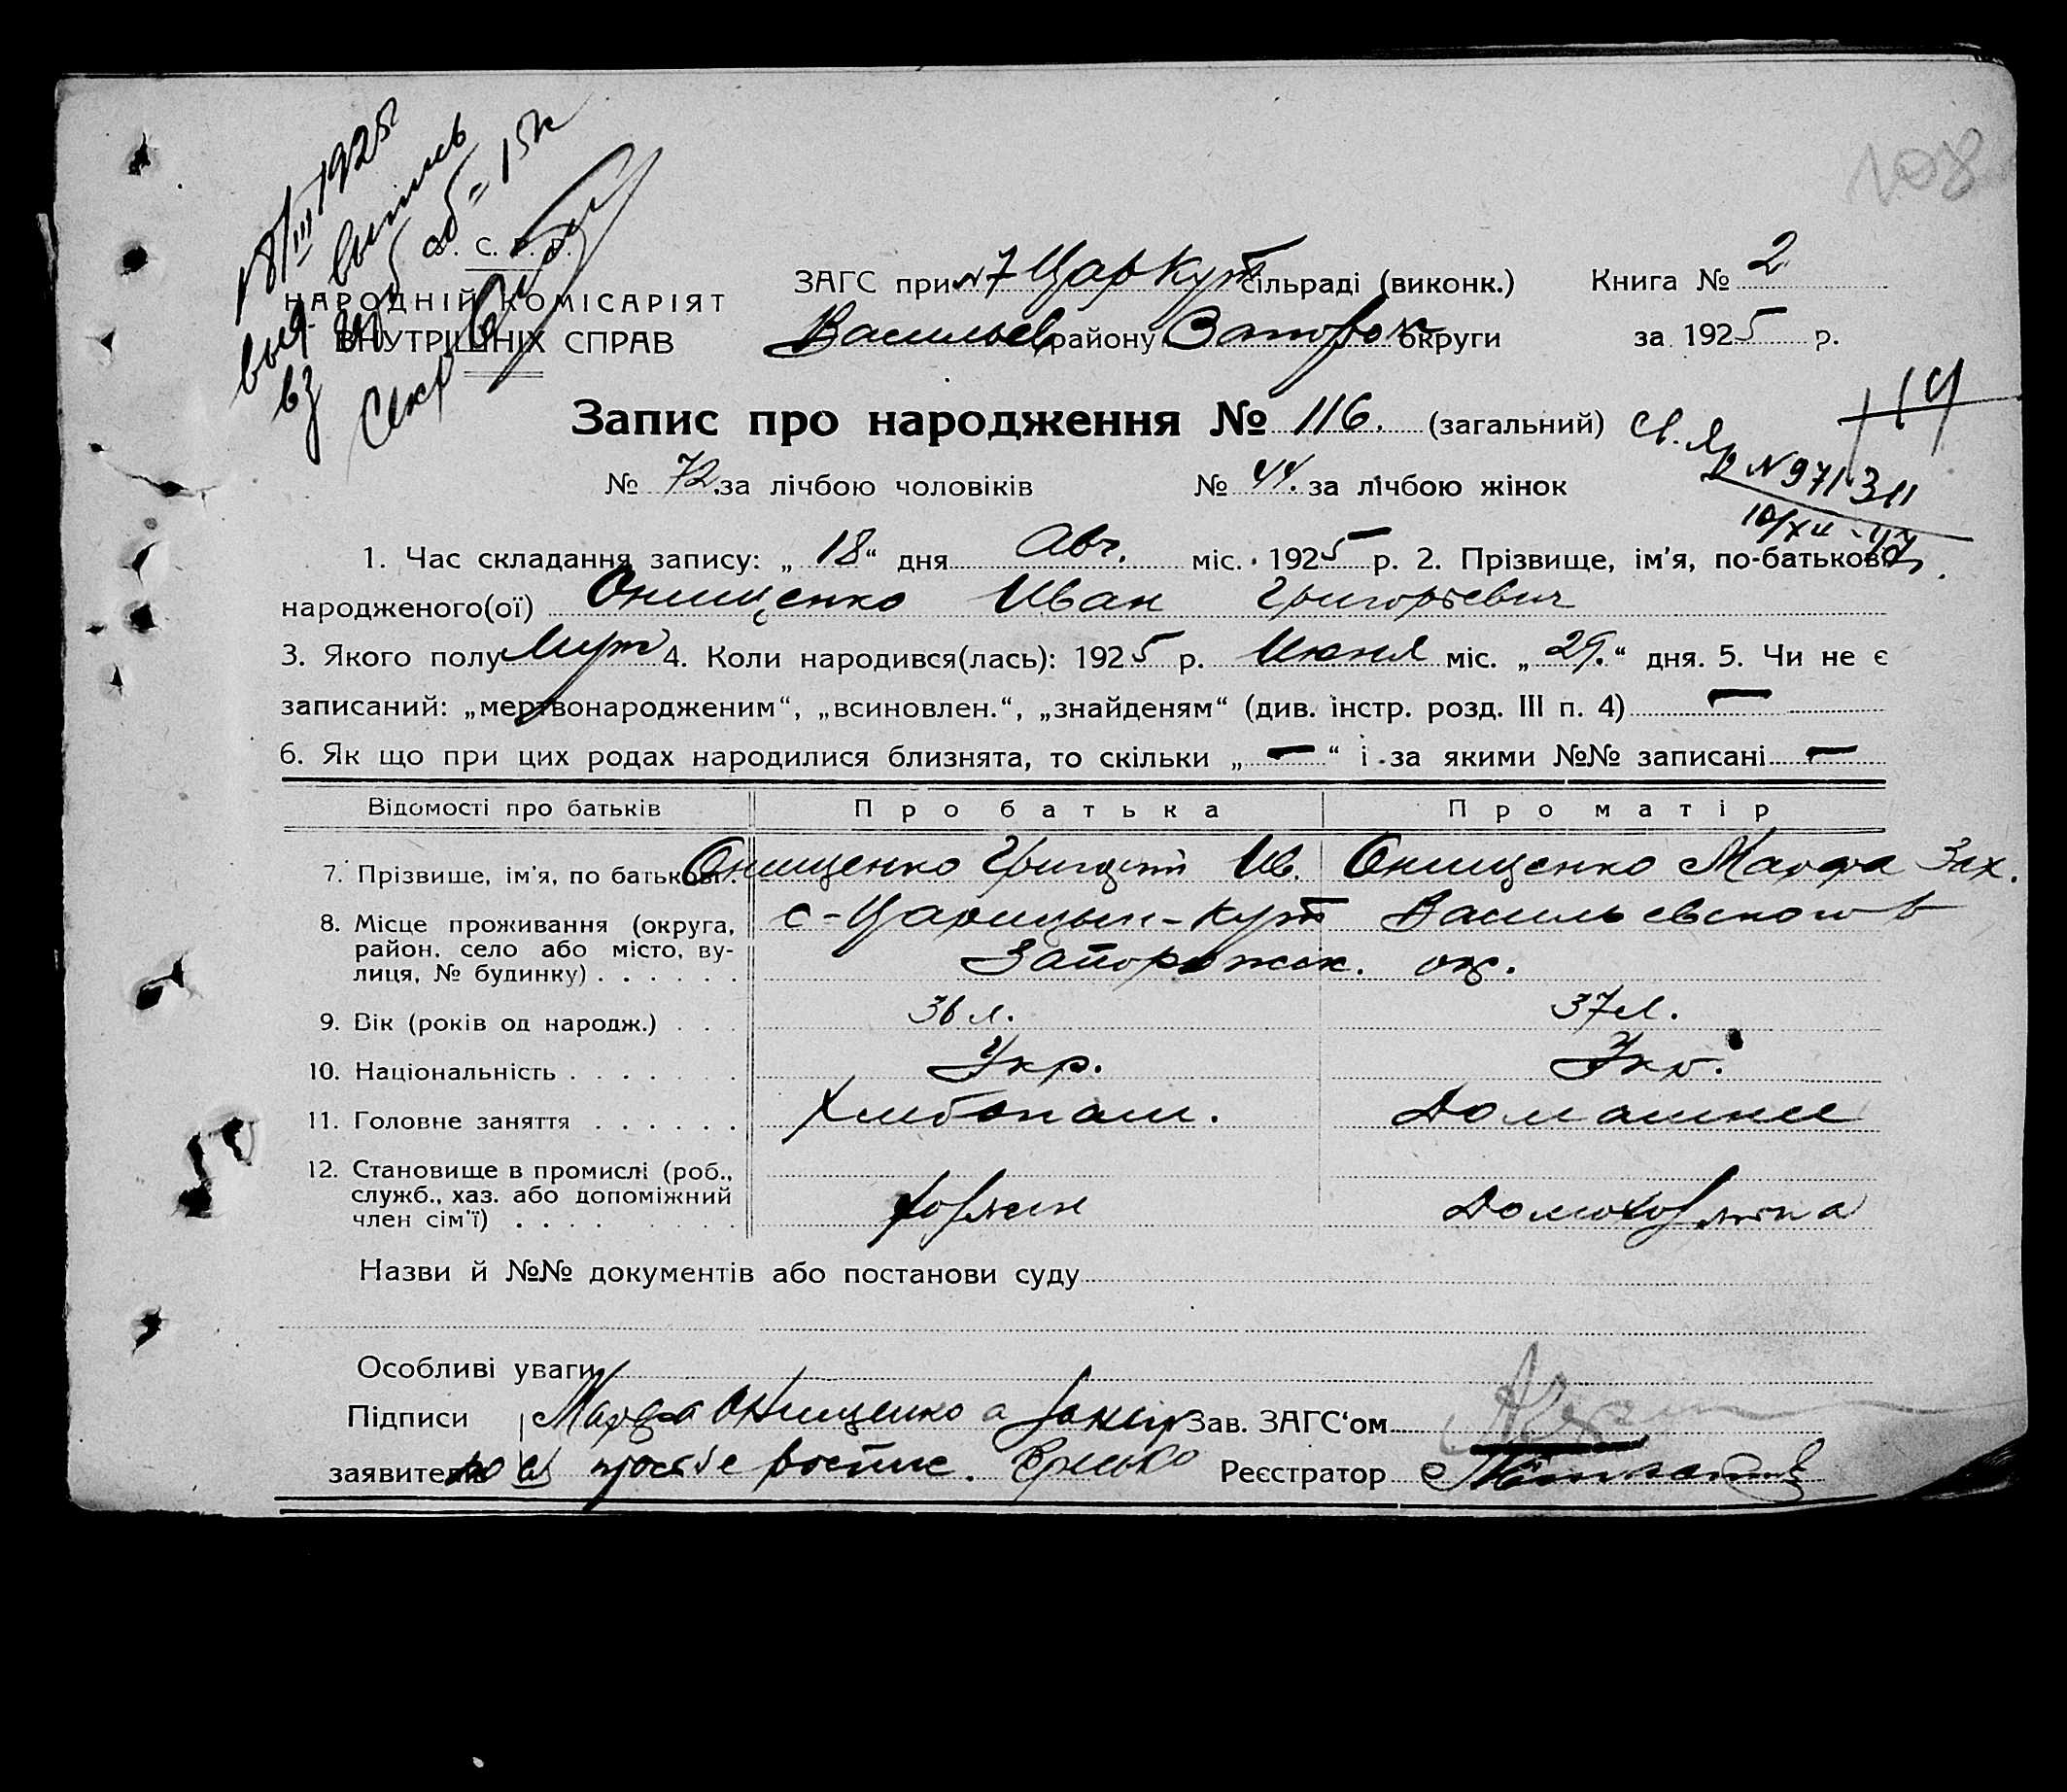 18/III 1925
выд. выпись
вз об = 15к
Секр
108
У. С. Р. Р.
НАРОДНІЙ КОМІСАРІЯТ
ВНУТРІШНІХ СПРАВ
ЗАГС при №7 Цар Кут сільраді (виконк.) Книга № 2
Васильев району Запорож округи за 1925 р.
Запис про народження № 116. (загальний)
119
№ 72. за лічбою чоловіків № 44. за лічбою жінок
№ 971311
10/XII - 47
1. Час складання запису: „ 18 “ дня Авг. міс. 1925 р. 2. Прізвище, ім’я, по-батькові
народженого(ої) Онищенко Иван Григорьевич
3. Якого полу Муж 4. Коли народився(лась): 1925 р. Июня міс. „ 29. “ дня. 5. Чи не є
записаний: „мертвонародженим“, „всиновлен.“, „знайденям“ (див. інстр. розд. III п. 4) —
6. Як що при цих родах народилися близнята, то скільки „ — “ і за якими №№ записані —
Відомості про батьків Про батька Про матір
7. Прізвище, ім’я, по батькові . Онищенко Григорий Ив. Онищенко Марфа Зах.
8. Місце проживання (округа, район, село або місто, вулиця, № будинку) . . . . . . с-Царицын-Кут Васильевского
Запорожск. ок.
9. Вік (років од народж.) . . . 36 л. 37 л.
10. Національність . . . . . . . Укр. Укр.
11. Головне заняття . . . . . . Хлибопаш. Домашнее
12. Становище в промислі (роб., служб., хаз. або допоміжний член сім’ї) . . . . Хозяин Домохозяйка
Назви й №№ документів або постанови суду
Особливі уваги
Підписи Марфа Онищенко а Зав. ЗАГС‘ом
заявителів просьбе Реєстратор